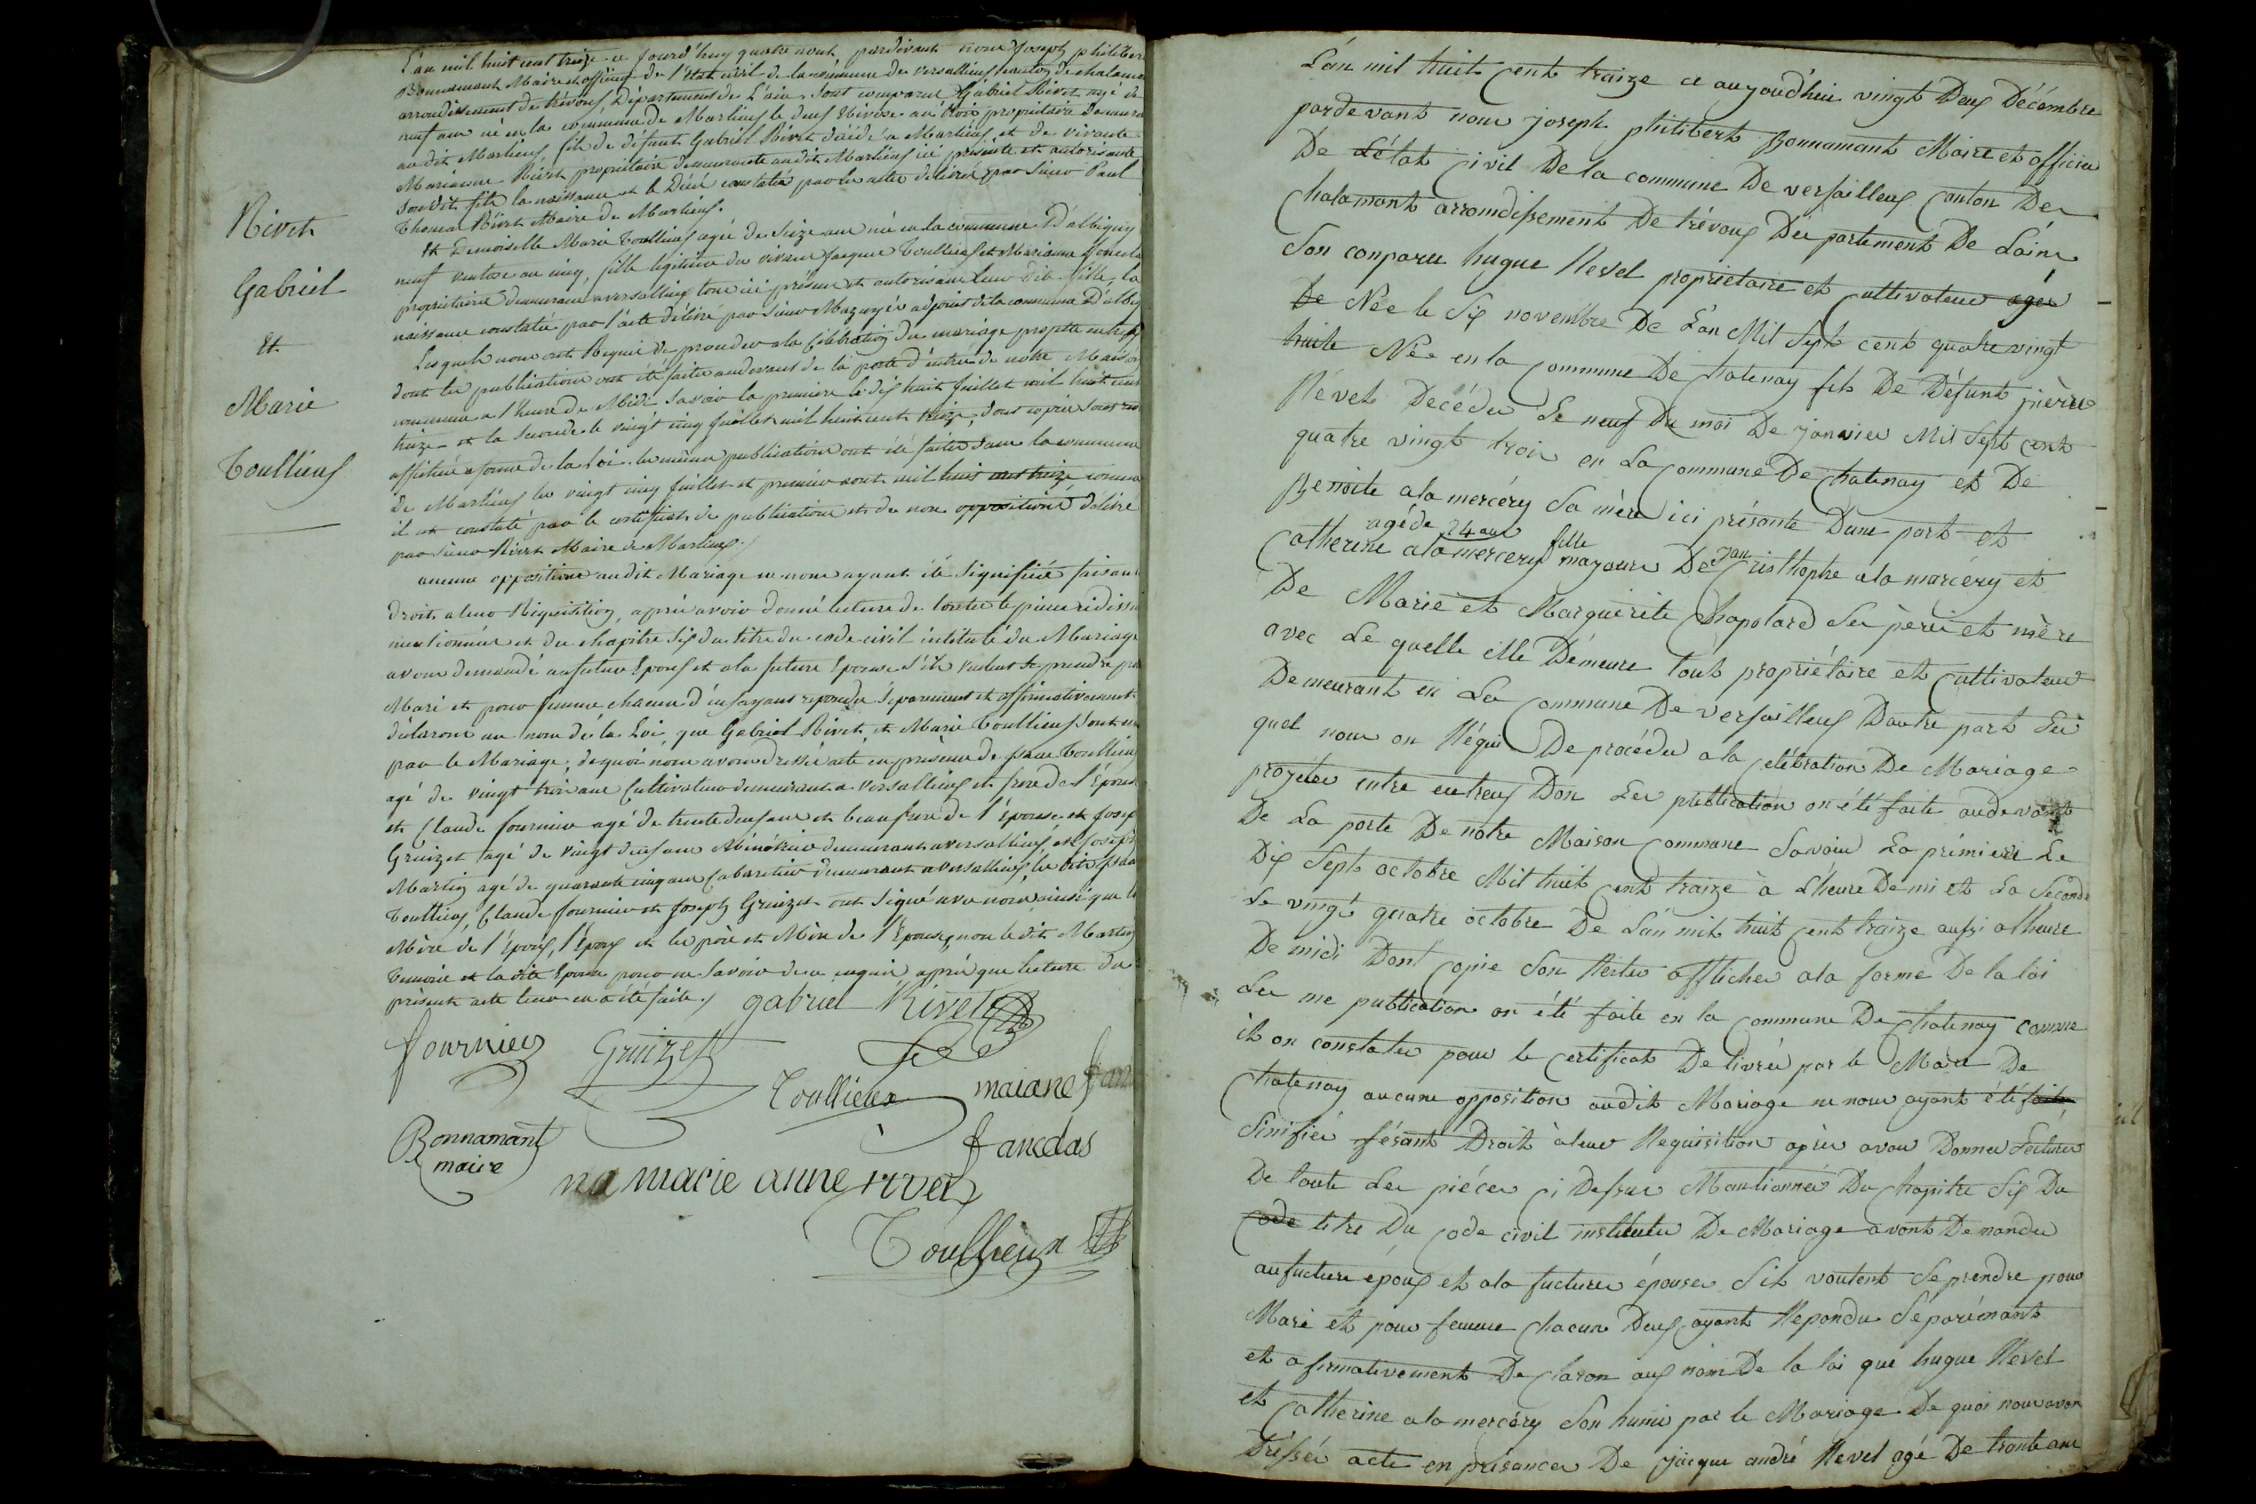 L'an mil huit cent treize ce jourd'huy quatre aout pardevant nous Joseph philibert
Bonnamant Maire et officier de l'état civil de la commune de versailleux canton de chalamont
arrondissement de trévoux Département de L'ain, sont comparus Gabriel Rivet agé de
neuf ans né en la commune de Marlieux le deux Nivôse an trois propriétaire demeurant
au dit Marlieux fils de défunt Gabriel Rivet décédé a Marlieux et de vivante
Marianne Rivet propriétaire demeurante audit Marlieux ici présente et autorisante
sondit fils la naissance et le Décé constatés par les actes délivrés par Sieur Paul
Thomas Rivet Maire de Marlieux.
Et Demoiselle Marie Toullieux agée de Seize ans née en la commune D'albigny
neuf ventose an cinq, fille légitime de vivans Jacques Toullieux et Marianne
propriétaires demeurans a versallieux tous ici présens et autorisans leur dite fille, la
naissance constatée par l'acte délivré par Sieur Mazuyer adjoint de la commune D'albigny
Lesquels nous ont Requis de procéder a la Célébration du mariage projetté entre eux
dont les publications ont été faites audevant de la porte d'entrée de notre Maison
commune a l'heure de Midi Savoir la premiere le dix huit Juillet mil huit cent
treize et la Seconde le vingt cinq Juillet mil huit cent treize, dont copies sont
affichés a forme de la loi. les mêmes publications ont été faites dans la commune
de Marlieux les vingt cinq Juillet et premier aout mil huit cent treize comme
il est constaté par le certificat de publications et de non oppositions délivré
par Sieur Rivet Maire de Marlieux.
aucune opposition audit Mariage ne nous ayant été Signifiée faisant
droit a leur Réquisition, après avoir donné lecture de toutes les pièces ci dessus
mentionnées et du chapitre Six du titre du code civil intitulé du Mariage
avons demandé au futur Epoux et a la future Epouse s'ils veulent se prendre pour
Mari et pour femme chacun d'eux ayant répondu séparément et affirmativement
déclarons au nom de la Loi, que Gabriel Rivet et Marie Toullieux sont unis
par le Mariage; de quoi nous avons dressé acte en présence de Toullieux
agé de vingt trois ans Cultivateur demeurant a versallieux et frere de l'Epouse
et Claude fournier agé de trente deux ans et beaufrere de l'Epouse et Joseph
Gruizet agé de vingt deux ans demeurant a versallieux, et Joseph
Martin agé de quarante cinq ans Cabaretier demeurant a versallieux, les dits
Toullieux, Claude fournier et Joseph Gruizet ont signé avec nous ainsi que la
Mère de l'Epoux, l'Epoux et les père et Mère de l'Epouse, non le dit Martin
Temoin et la dite Epouse pour ne Savoir de ce enquis après que lecture du
présent acte leur en a été faite.
Rivet
Gabriel
Et
Marie
Toullieux
gabriel Rivet
fournier Gruizet
Toullieux maiane fan
Bonnamant
maire
fancelas
marie anne rivet
Toullieux
L'án mil huit cent traize ce aujoud'hui vingt Deux Décémbre
pardevant nous joseph philibert Bonnamant Maire et officier
De L'état Civil De la commune De versailleux Canton De
Chalamont arrondissement De trévoux Département De L'ain
Son conparu hugue Revel proprietaire et Cultivateur agée
De Née le Six novembre De L'án Mil Sept cent quatre vingt
huite Née en la Commune De Chatenay fils De Défunt pièrre
Révél Décédée Le neuf Du moi De janvier Mil Sept cent
quatre vingt troi en La Commune De Chatenay et De
Benoite ala mercéry Sa mère ici présante Dune part et
agéde 24 ans
Catherine ala mercery fille mazeure De jan Cristhophe ala marcéry et
De Marie et Marguérite Chapolard Ses pèrei et mère
avec Le quelle elle Démeure tout propriétaire et Cultivateur
Demeurant en La Commune De versailleux Dautre part Lès
quel nous on Réqui De procédér a la Célébration De Mariage
projetée entre eutreux Don Les publication on été faite audevant
De La porte De notre Maison Commune Savoir La prémière Le
Dix Sept octobre Mil huit Cent traize à L'heure Démi et La Seconde
Le vingt quatre octobre De L'án mil huit Cent traize aussi a L'heure
De midi Dont Copie Son Restée afficher ala forme De la loi
Les me publication on été faite en la Commune De Chatenay comme
il on constatée pour le Certificat De livrée par le Maire De
Chatenay aucune opposition audit Mariage ne nous ayant été faite
Sinifiée fésant Droit à leur Réquisition aprés avoir Donnée Lécture
De toute Les piéces Ci Dessus Mantionnée Du Chapitre Six Du
Code titre Du Code civil institutée De Mariage avont Demandée
au fucture époux et ala fucture épouse Sil voulent Se prendre pour
Mari et pour femme Chacun Deux ayant Répondu Séparémant
et afirmativement De Claron aux nom De la loi que hugue Revel
et Catherine ala mercéry Son hunie par le Mariage De quoi nous avon
Dréssée acte en présance De jacque andré Revel agé De trante ans